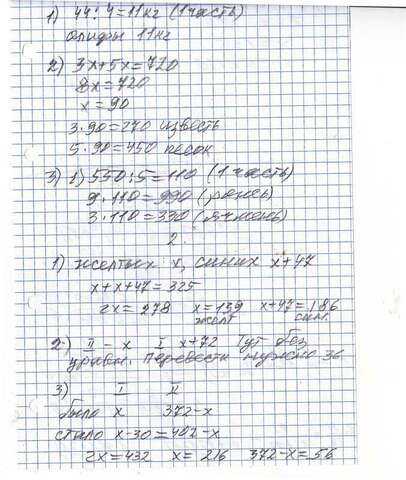 1) 44:4=11кг (1 часть)
олифы 11кг
2) 3x+5x=720
8x=720
x=90
3·90=270 известь
5·90=450 песок
3) 1) 550:5=110 (1 часть)
9·110=990 (рожь)
3·110=330 (ячмень)
2.
1) желтых x, синих x+47
x+x+47=325
2x=278 x=139 x+47=186
желт син.
2) II - x I x+72 Тут без
уравн. Перевести нужно 36
3) I II
было x 372-x
стало x-30=402-x
2x=432 x=216 372-x=56